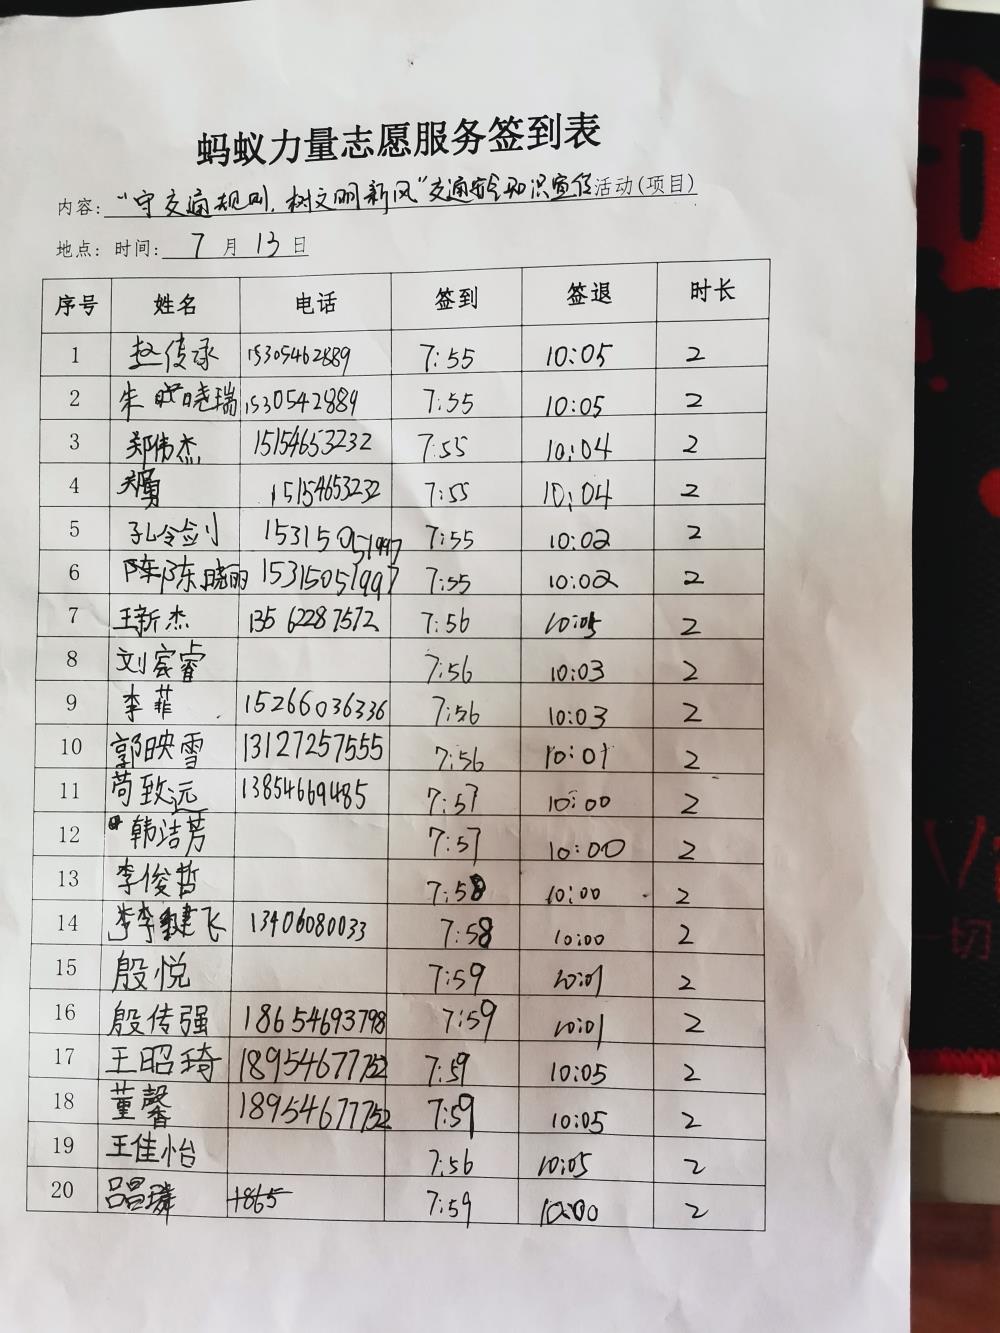 蚂蚁力量志愿服务签到表
内容: “守交通规则，树文明新风”交通安全知识宣传活动(项目)
地点: 时间: 7 月 13 日
序号 姓名 电话 签到 签退 时长
1 赵传承 15305462889 7:55 10:05 2
2 朱晓瑞 1530542889 7:55 10:05 2
3 郑伟杰 15154653232 7:55 10:04 2
4 15154653232 7:55 10:04 2
5 孔令剑 15315051997 7:55 10:02 2
6 陈晓丽 15315051997 7:55 10:02 2
7 王新杰 13562287572 7:56 10:05 2
8 刘宸睿 7:56 10:03 2
9 李菲 15266036336 7:56 10:03 2
10 郭映雪 13127257555 7:56 10:01 2
11 苟致远 13854669485 7:57 10:00 2
12 韩洁芳 7:57 10:00 2
13 李俊哲 7:58 10:00 2
14 李健飞 13406080033 7:58 10:00 2
15 殷悦 7:59 10:01 2
16 殷传强 18654693798 7:59 10:01 2
17 王昭琦 18954677752 7:59 10:05 2
18 董馨 18954677752 7:59 10:05 2
19 王佳怡 7:56 10:05 2
20 吕昌璘 1865 7:59 10:00 2
一切